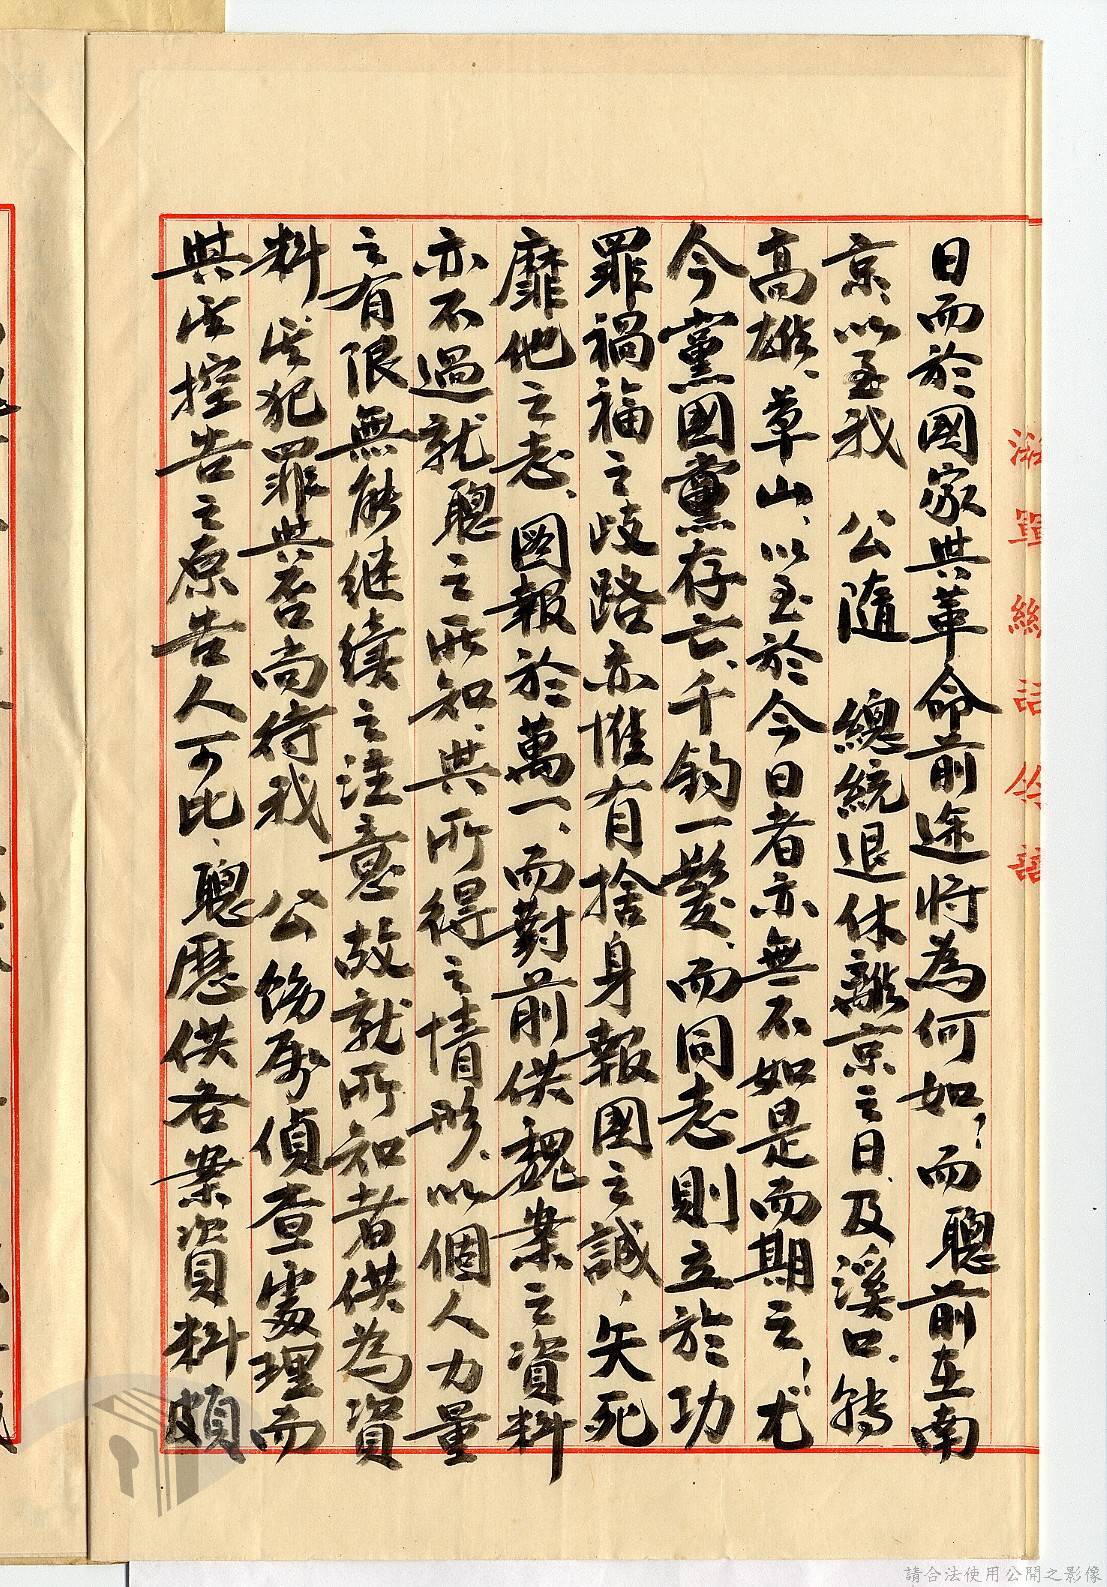 日而於國家與革命前途將為何如，而　聰前在南
京、以至我　公隨　總統退休離京之日、及溪口、轉
高雄、草山、以至於今日者亦無不如是而期之！尤
今黨國黨存亡、千鈞一髮、而同志則立於功
罪禍福之歧路亦惟有捨身報國之誠，矢死
靡他之志、圖報於萬一、而對前供魏案之資料
亦不過就聰之所知、與所得之情形、以個人力量
之有限無能繼續之注意故就所知者供為資
料、其犯罪與否尚待我　公飭屬偵查處理而
與其控告之原告人可比、聰歷供各案資料頗
請合法使用公開之影像